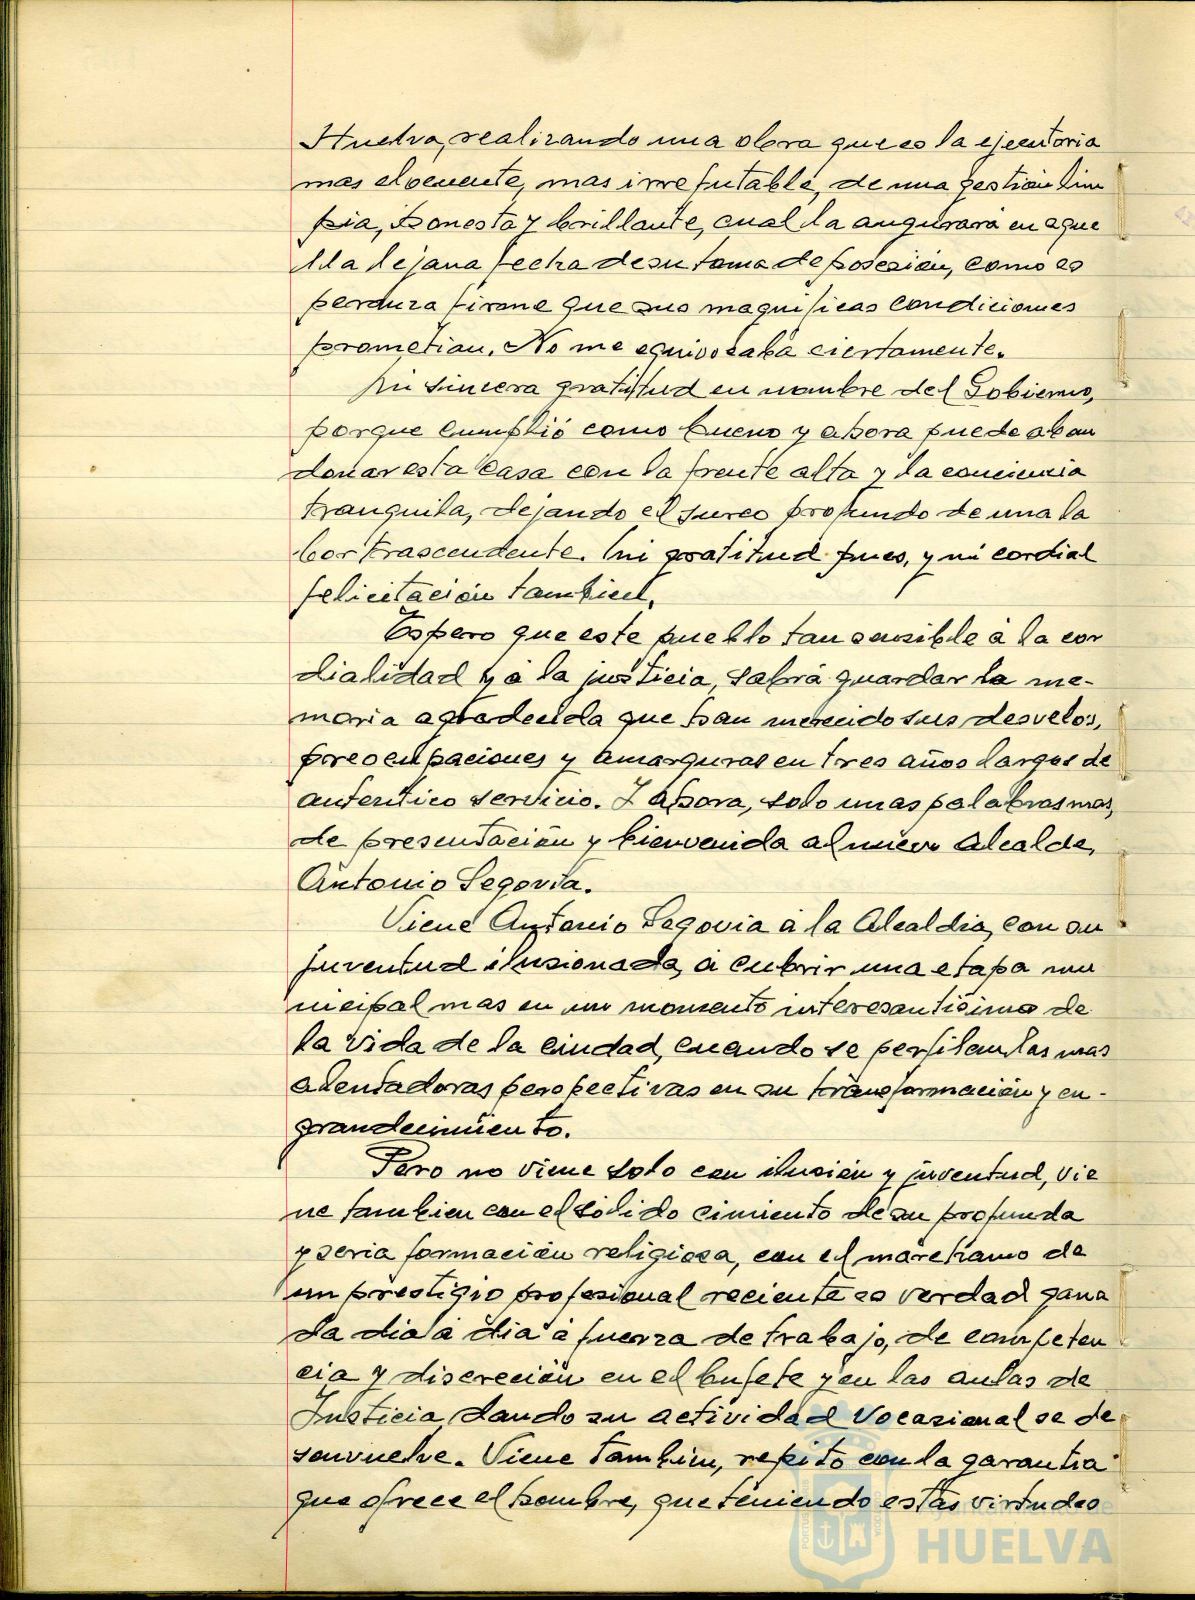 Huelva, realizando una obra que es la ejecutoria
mas elocuente, mas irrefutable, de una gestión lim
pia, honesta y brillante, cual la augurara en aque
lla lejana fecha de su toma de posesión, como es
peranza firme que sus magnificas condiciones
prometian. No me equivocaba ciertamente.
Mi sincera gratitud en nombre del Gobierno,
porque cumplió como bueno y ahora puede aban
donar esta casa con la frente alta y la conciencia
tranquila, dejando el surco profundo de una la
bor trascendente. Mi gratitud pues, y mi cordial
felicitación tambien.
Espero que este pueblo tan sensible á la cor
dialidad y á la justicia, sabrá guardar la me-
moria agradecida que han merecido sus desvelos,
preocupaciones y amarguras en tres años largos de
autentico servicio. Y ahora, solo unas palabras mas,
de presentación y bienvenida al nuevo Alcalde,
Antonio Segovia.
Viene Antonio Segovia á la Alcaldia, con su
juventud ilusionada, á cubrir una etapa mu
nicipal mas en un momento interesantisimo de
la vida de la ciudad, cuando se perfilan las mas
alentadoras perspectivas en su transformación y en-
grandecimiento.
Pero no viene solo con ilusión y juventud, vie
ne tambien con el sólido cimiento de su profunda
y seria formación religiosa, con el marchamo de
un prestigio profesional reciente es verdad gana
da dia á dia á fuerza de trabajo, de competen
cia y discreción en el bufete y en las aulas de
Justicia, dando su actividad vocasional se de
senvuelve. Viene tambien, repito con la garantia
que ofrece el hombre, que teniendo estas virtudes
Ayuntamiento de
HUELVA